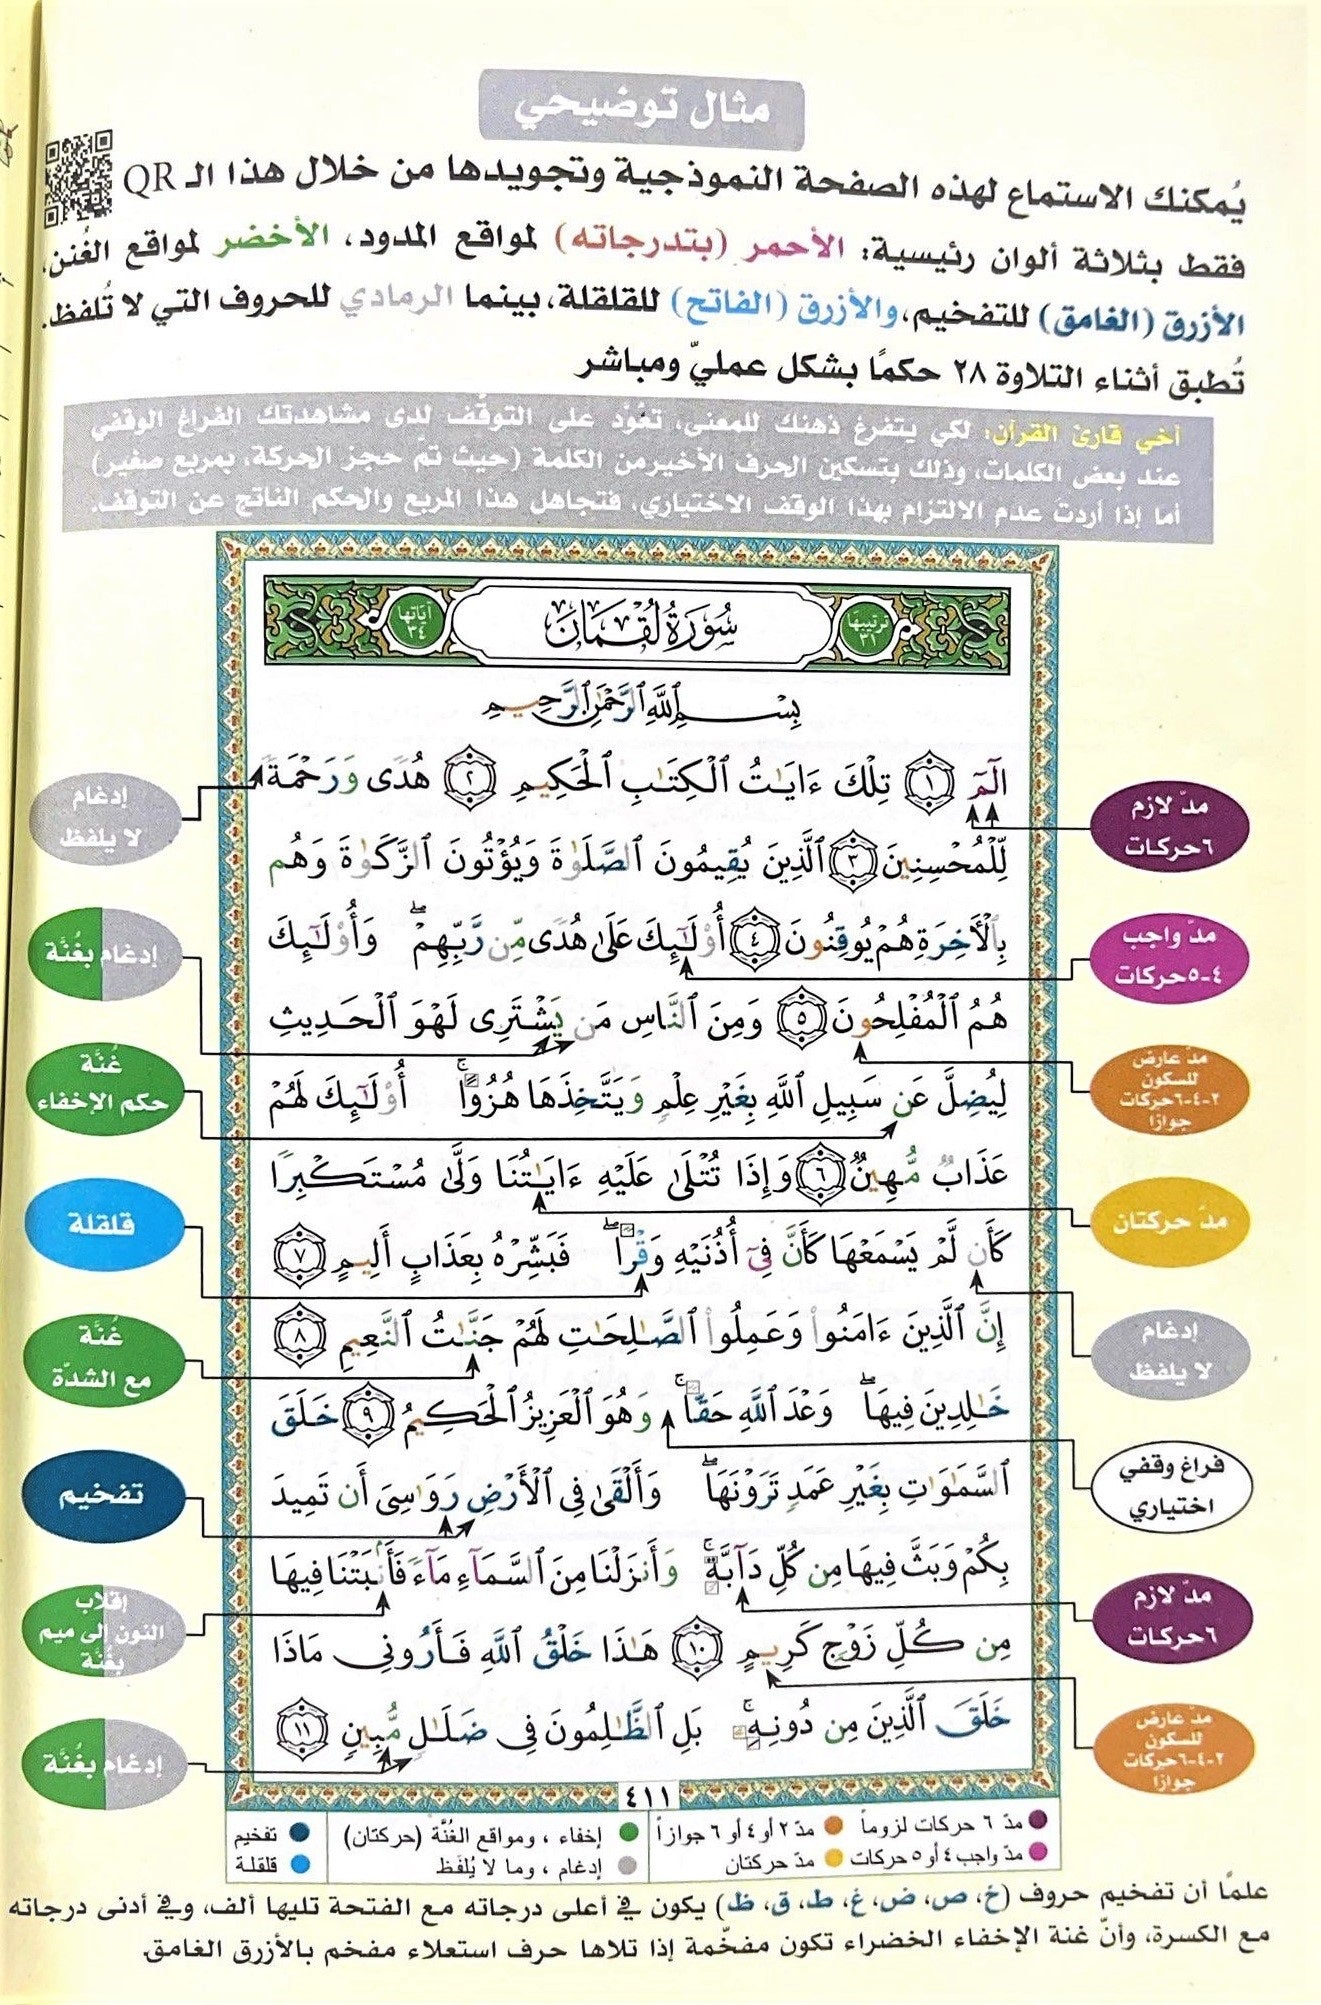 مثال توضيحي
يُمكنك الاستماع لهذه الصفحة النموذجية وتجويدها من خلال هذا الـ QR
فقط بثلاثة ألوان رئيسية: الأحمر (بتدرجاته) لمواقع المدود، الأخضر لمواقع الغُنن،
الأزرق (الغامق) للتفخيم، والأزرق (الفاتح) للقلقلة، بينما الرمادي للحروف التي لا تُلفظ.
تُطبق أثناء التلاوة ٢٨ حكمًا بشكل عمليّ ومباشر
أخي قارئ القرآن: لكي يتفرغ ذهنك للمعنى، تعَوَّد على التوقّف لدى مشاهدتك الفراغ الوقفي
عند بعض الكلمات، وذلك بتسكين الحرف الأخير من الكلمة (حيث تمّ حجز الحركة، بمربع صغير)
أما إذا أردت عدم الالتزام بهذا الوقف الاختياري، فتجاهل هذا المربع والحكم الناتج عن التوقف.
ترتيبها ٣١
سُورَةُ لُقْمَان
آيَاتها ٣٤
بِسْمِ ٱللَّهِ ٱلرَّحْمَٰنِ ٱلرَّحِيمِ
الٓمٓ ١ تِلْكَ ءَايَٰتُ ٱلْكِتَٰبِ ٱلْحَكِيمِ ٢ هُدًى وَرَحْمَةً
لِّلْمُحْسِنِينَ ٣ ٱلَّذِينَ يُقِيمُونَ ٱلصَّلَوٰةَ وَيُؤْتُونَ ٱلزَّكَوٰةَ وَهُم
بِٱلْأَخِرَةِ هُمْ يُوقِنُونَ ٤ أُو۟لَٰٓئِكَ عَلَىٰ هُدًى مِّن رَّبِّهِمْ ۖ وَأُو۟لَٰٓئِكَ
هُمُ ٱلْمُفْلِحُونَ ٥ وَمِنَ ٱلنَّاسِ مَن يَشْتَرِى لَهْوَ ٱلْحَدِيثِ
لِيُضِلَّ عَن سَبِيلِ ٱللَّهِ بِغَيْرِ عِلْمٍ وَيَتَّخِذَهَا هُزُوًا ۚ أُو۟لَٰٓئِكَ لَهُمْ
عَذَابٌ مُّهِينٌ ٦ وَإِذَا تُتْلَىٰ عَلَيْهِ ءَايَٰتُنَا وَلَّىٰ مُسْتَكْبِرًا
كَأَن لَّمْ يَسْمَعْهَا كَأَنَّ فِىٓ أُذُنَيْهِ وَقْرًا ۖ فَبَشِّرْهُ بِعَذَابٍ أَلِيمٍ ٧
إِنَّ ٱلَّذِينَ ءَامَنُوا۟ وَعَمِلُوا۟ ٱلصَّٰلِحَٰتِ لَهُمْ جَنَّٰتُ ٱلنَّعِيمِ ٨
خَٰلِدِينَ فِيهَا ۖ وَعْدَ ٱللَّهِ حَقًّا ۚ وَهُوَ ٱلْعَزِيزُ ٱلْحَكِيمُ ٩ خَلَقَ
ٱلسَّمَٰوَٰتِ بِغَيْرِ عَمَدٍ تَرَوْنَهَا ۖ وَأَلْقَىٰ فِى ٱلْأَرْضِ رَوَٰسِىَ أَن تَمِيدَ
بِكُمْ وَبَثَّ فِيهَا مِن كُلِّ دَآبَّةٍ ۚ وَأَنزَلْنَا مِنَ ٱلسَّمَآءِ مَآءً فَأَنۢبَتْنَا فِيهَا
مِن كُلِّ زَوْجٍ كَرِيمٍ ١٠ هَٰذَا خَلْقُ ٱللَّهِ فَأَرُونِى مَاذَا
خَلَقَ ٱلَّذِينَ مِن دُونِهِ ۚ بَلِ ٱلظَّٰلِمُونَ فِى ضَلَٰلٍ مُّبِينٍ ١١
٤١١
مدّ لازم
٦ حركات
مدّ واجب
٤-٥ حركات
مدّ عارض
للسكون
٢-٤-٦ حركات
جوازًا
مدّ حركتان
إدغام
لا يلفظ
فراغ وقفي
اختياري
مدّ لازم
٦ حركات
مدّ عارض
للسكون
٢-٤-٦ حركات
جوازًا
إدغام
لا يلفظ
إدغام بغُنَّة
غُنَّة
حكم الإخفاء
قلقلة
غُنَّة
مع الشدّة
تفخيم
إقلاب
النون إلى ميم
بغُنَّة
إدغام بغُنَّة
مدّ ٦ حركات لزوماً
مدّ ٢ أو ٤ أو ٦ جوازاً
إخفاء ، ومواقع الغُنَّة (حركتان)
تفخيم
مدّ واجب ٤ أو ٥ حركات
مدّ حركتان
إدغام ، وما لا يُلفَظ
قلقلة
علمًا أن تفخيم حروف (خ، ص، ض، غ، ط، ق، ظ) يكون في أعلى درجاته مع الفتحة تليها ألف، وفي أدنى درجاته
مع الكسرة، وأنّ غنة الإخفاء الخضراء تكون مفخّمة إذا تلاها حرف استعلاء مفخم بالأزرق الغامق.